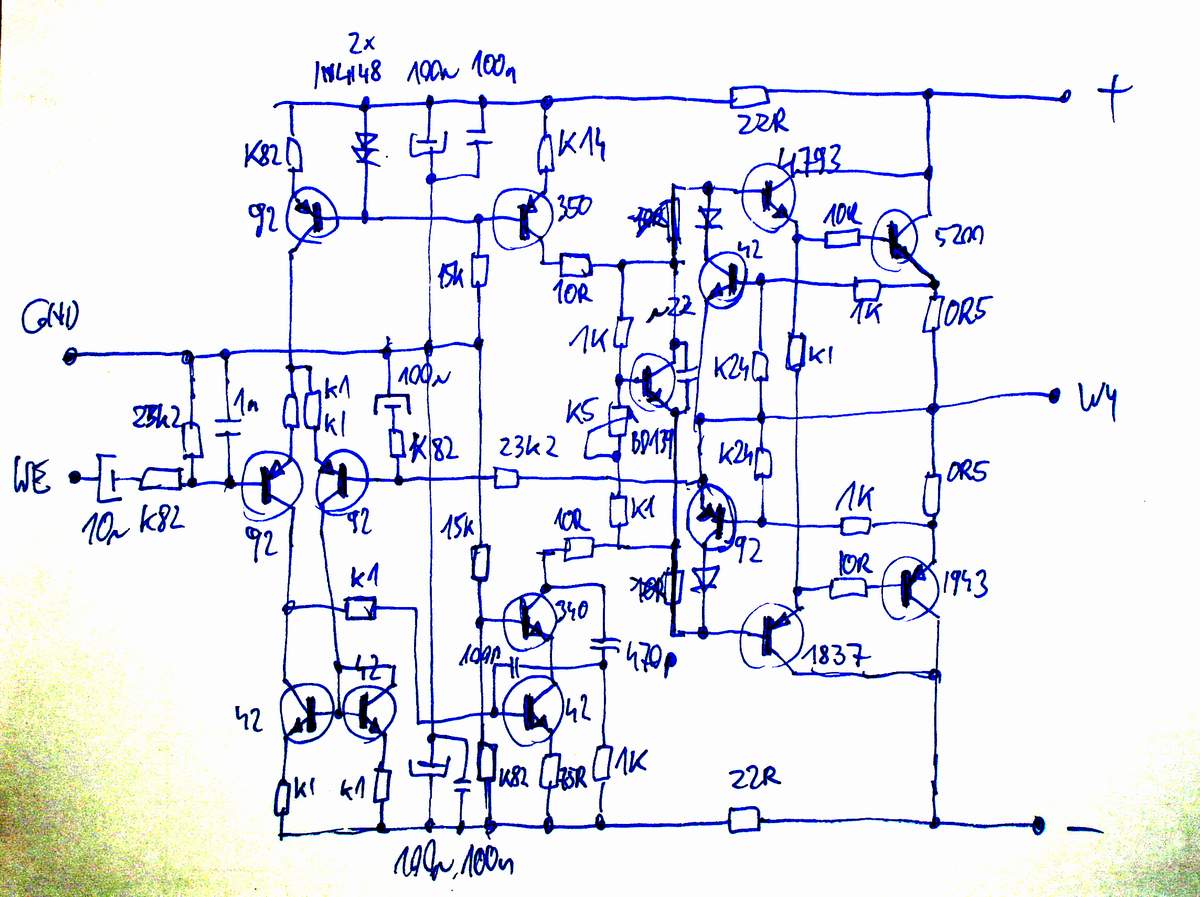 2x
1N4148
100u
100n
+
22R
K82
K14
4793
92
350
10R
5200
42
15k
10R
1K
0R5
GND
1K
K24
K1
100u
k1
k1
W4
23k2
1n
K5
BD139
K82
23k2
K24
0R5
WE
10u
K82
92
92
15k
10R
K1
92
1K
10R
10R
1943
k1
340
470p
1837
42
42
42
k1
k1
K82
1K
22R
-
100u, 100n